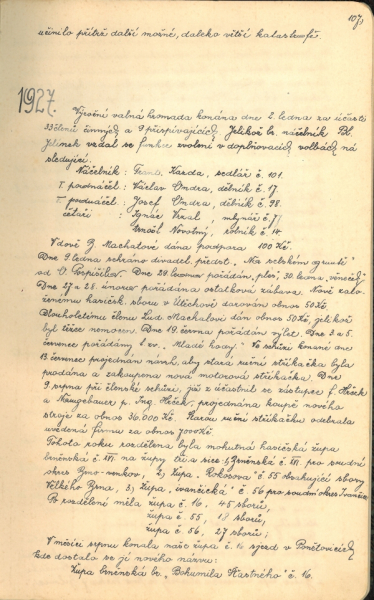 107.
učinilo přítrž další možné, daleko větší katastrofě.
1927.
Výroční valná hromada konána dne 2. ledna za účasti
33 členů činných a 9 přispívajících. Jelikož br. náčelník Boh.
Jelinek vzdal se funkce zvoleni v doplňovacích volbách na
sledující:
Náčelník: Frant. Karda, sedlář č. 101.
I. podnáčel: Václav Ondra, dělník č. 17.
II. podnáčel: Josef Ondra, dělník č. 98.
četaři: Ignác Vizal, mlynář č. 71
Arnošt Novotný, rolník č. 14
Vdově B. Machalové dána podpora 100 Kč.
Dne 9 ledna sehráno divadel. předst. „Na selském gruntě"
od V. Pospíšilov. Dne 29. ledna pořádán „ples", 30. ledna „věneček"
Dne 27 a 28. února pořádána ostatková zábava. Nově zalo-
ženému hasičsk. sboru v Útěchově darován obnos 50 Kč.
Dlouholetému členu Lud. Machalovi dán obnos 50 Kč, jelikož
byl těžce nemocen. Dne 19. června pořádán výlet. Dne 3. a 5.
července pořádány t. zv. „Mladé hody". Ve schůzi konané dne
13 července projednán návrh, aby stará ruční stříkačka byla
prodána a zakoupena nová motorová stříkačka. Dne
9 srpna při členské schůzi, již se zúčastnil zástupce f. Hrček
a Neugebauer p. Ing. Hrček, projednána koupě nového
stroje za obnos 36.000 Kč. Starou ruční stříkačku odebrala
uvedená firma za obnos 7000 Kč
Tohoto roku rozdělena byla mohutná hasičská župa
brněnská č. XVI na župy tři a sice: 1, Brněnská č. XVI pro soudní
okres Brno-venkov, 2, župa „Rokosova" č 55 obsahující sbory
Velkého Brna, 3, župa „ivančická" č. 56 pro soudní okres Ivančice.
Po rozdělení měla župa č. 16, 45 sborů,
župa č. 55, sborů,
župa č. 56, 27 sborů;
V měsíci srpnu konala naše župa č. 16 sjezd v Ponětovicích
kde dostalo se jí nového názvu:
Župa brněnská br. „Bohumila Šťastného" č. 16.